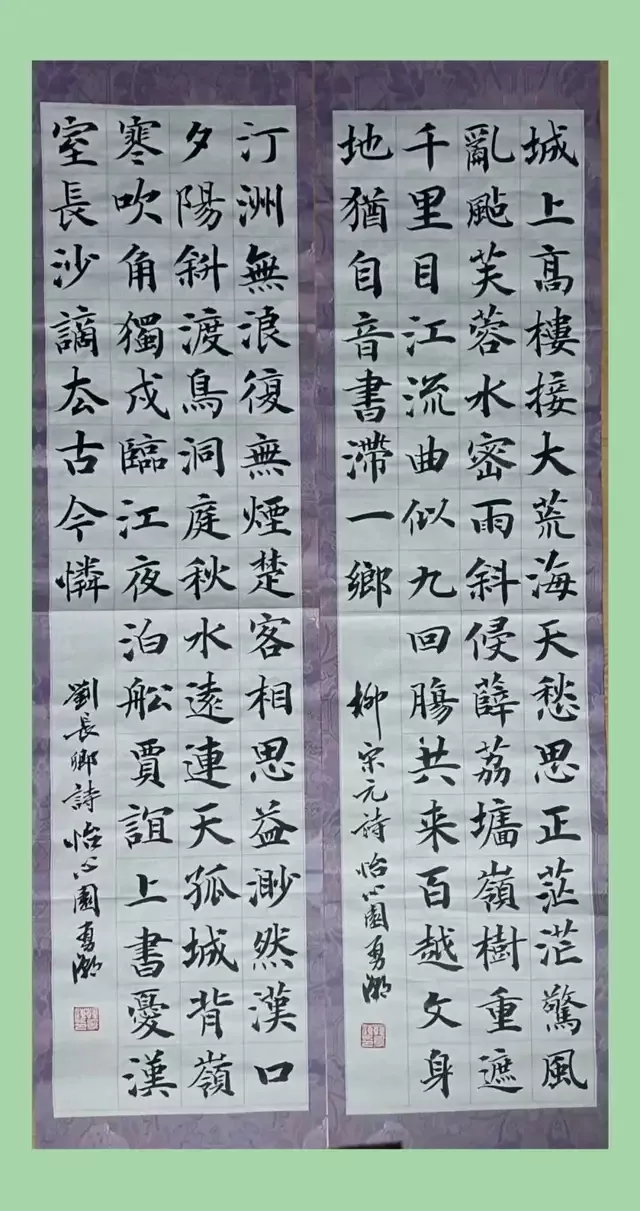 城上高樓接大荒海天愁思正茫茫驚風
亂颭芙蓉水密雨斜侵薜荔墻嶺樹重遮
千里目江流曲似九回腸共来百越文身
地猶自音書滯一鄉
柳宗元詩怡心園勇
汀洲無浪復無煙楚客相思益渺然漢口
夕陽斜渡鳥洞庭秋水遠連天孤城背嶺
寒吹角獨戍臨江夜泊舩賈誼上書憂漢
室長沙謫去古今憐
劉長卿詩怡心園勇